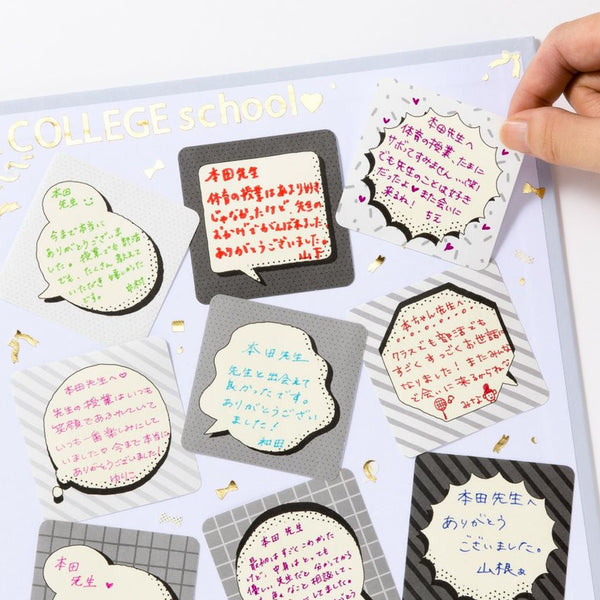 COLLEGE school♥
本田
先生
今まで本当に
ありがとうございま
した。授業でも部活
でも、たくさん教えて
いただき嬉しかった
です。
中村
本田先生
体育の授業はあまり好き
じゃなかったけど、先生の
おかげでもがんばれました。
ありがとうございました。
山下
本田先生へ
体育の授業、たまに
サボってすみません…(笑)
でも先生のことは好き
だったよ♥また会いに
来るね!
ちえ
本田先生へ♡
先生の授業はいつも
笑顔であふれていて
いつも一番楽しみにして
いました♡今まで本当に
ありがとうございました!
ゆりこ
本田先生
先生と出会えて
良かったです。
ありがとうござい
ました!
和田
本ちゃん先生へ
クラスでも部活でも
すごくすっごくお世話に
なりました!またみんな
で会いに来るからね〜
みさよ
本田
先生♥
本田先生
最初はすごくこわかった
けど、中身はとっても
優しい先生だと分かってから
色んなこと相談して
本田先生へ
ありがとう
ございました。
山根